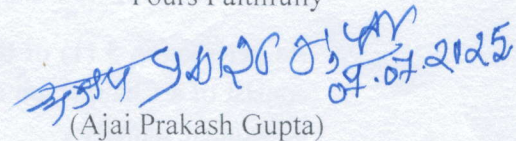 Yours Faithfully
अजय प्रकाश
07.07.2025
(Ajai Prakash Gupta)